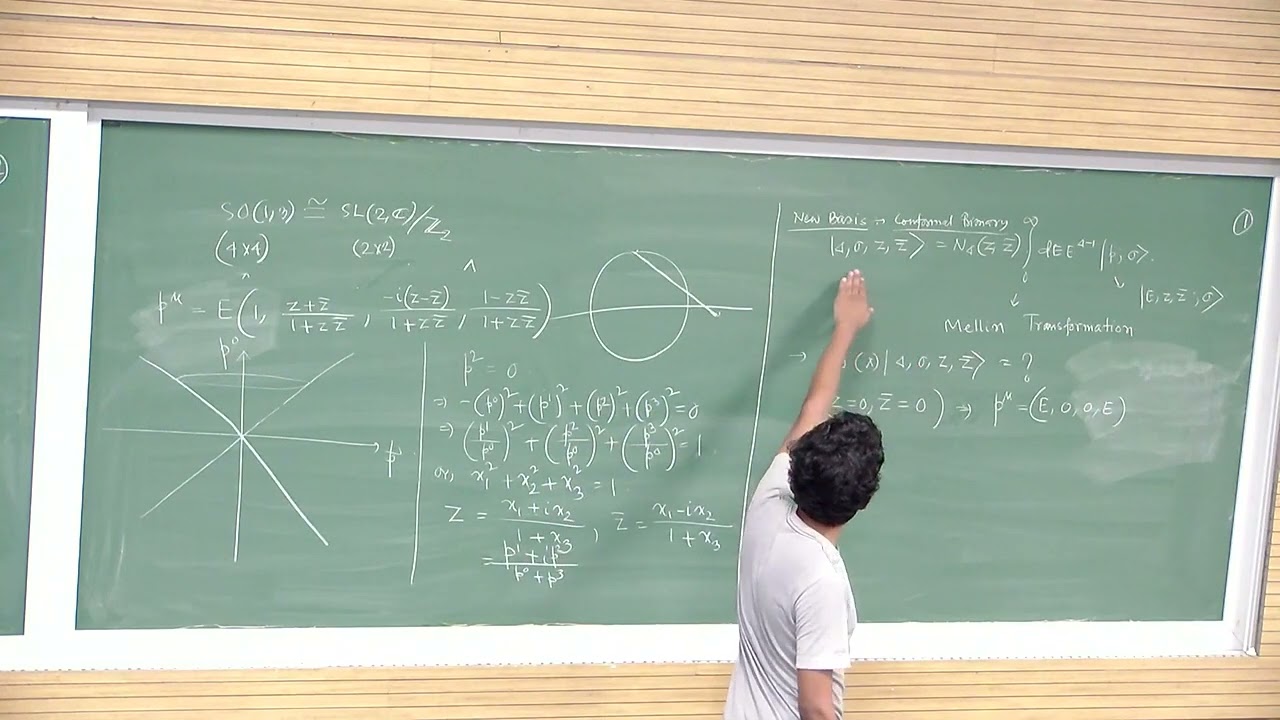 SO(1,3) ≅ SL(2,ℂ)/ℤ₂
(4×4) (2×2)
p^μ = E(1, (z+z̄)/(1+zz̄), (-i(z-z̄))/(1+zz̄), (1-zz̄)/(1+zz̄))
p⁰
p
p² = 0
⇒ -(p⁰)² + (p¹)² + (p²)² + (p³)² = 0
⇒ (p¹/p⁰)² + (p²/p⁰)² + (p³/p⁰)² = 1
or, x₁² + x₂² + x₃² = 1
z = (x₁ + ix₂)/(1 + x₃), z̄ = (x₁ - ix₂)/(1 + x₃)
= (p¹ + ip²)/(p⁰ + p³)
①
New Basis → Conformal Primary
|Δ, σ, z, z̄⟩ = N_Δ(z, z̄) ∫₀^∞ dE E^{Δ-1} |p, σ⟩.
|E, z, z̄; σ⟩
Mellin Transformation
→ (λ)|Δ, σ, z, z̄⟩ = ?
z = 0, z̄ = 0) ⇒ p^μ = (E, 0, 0, E)